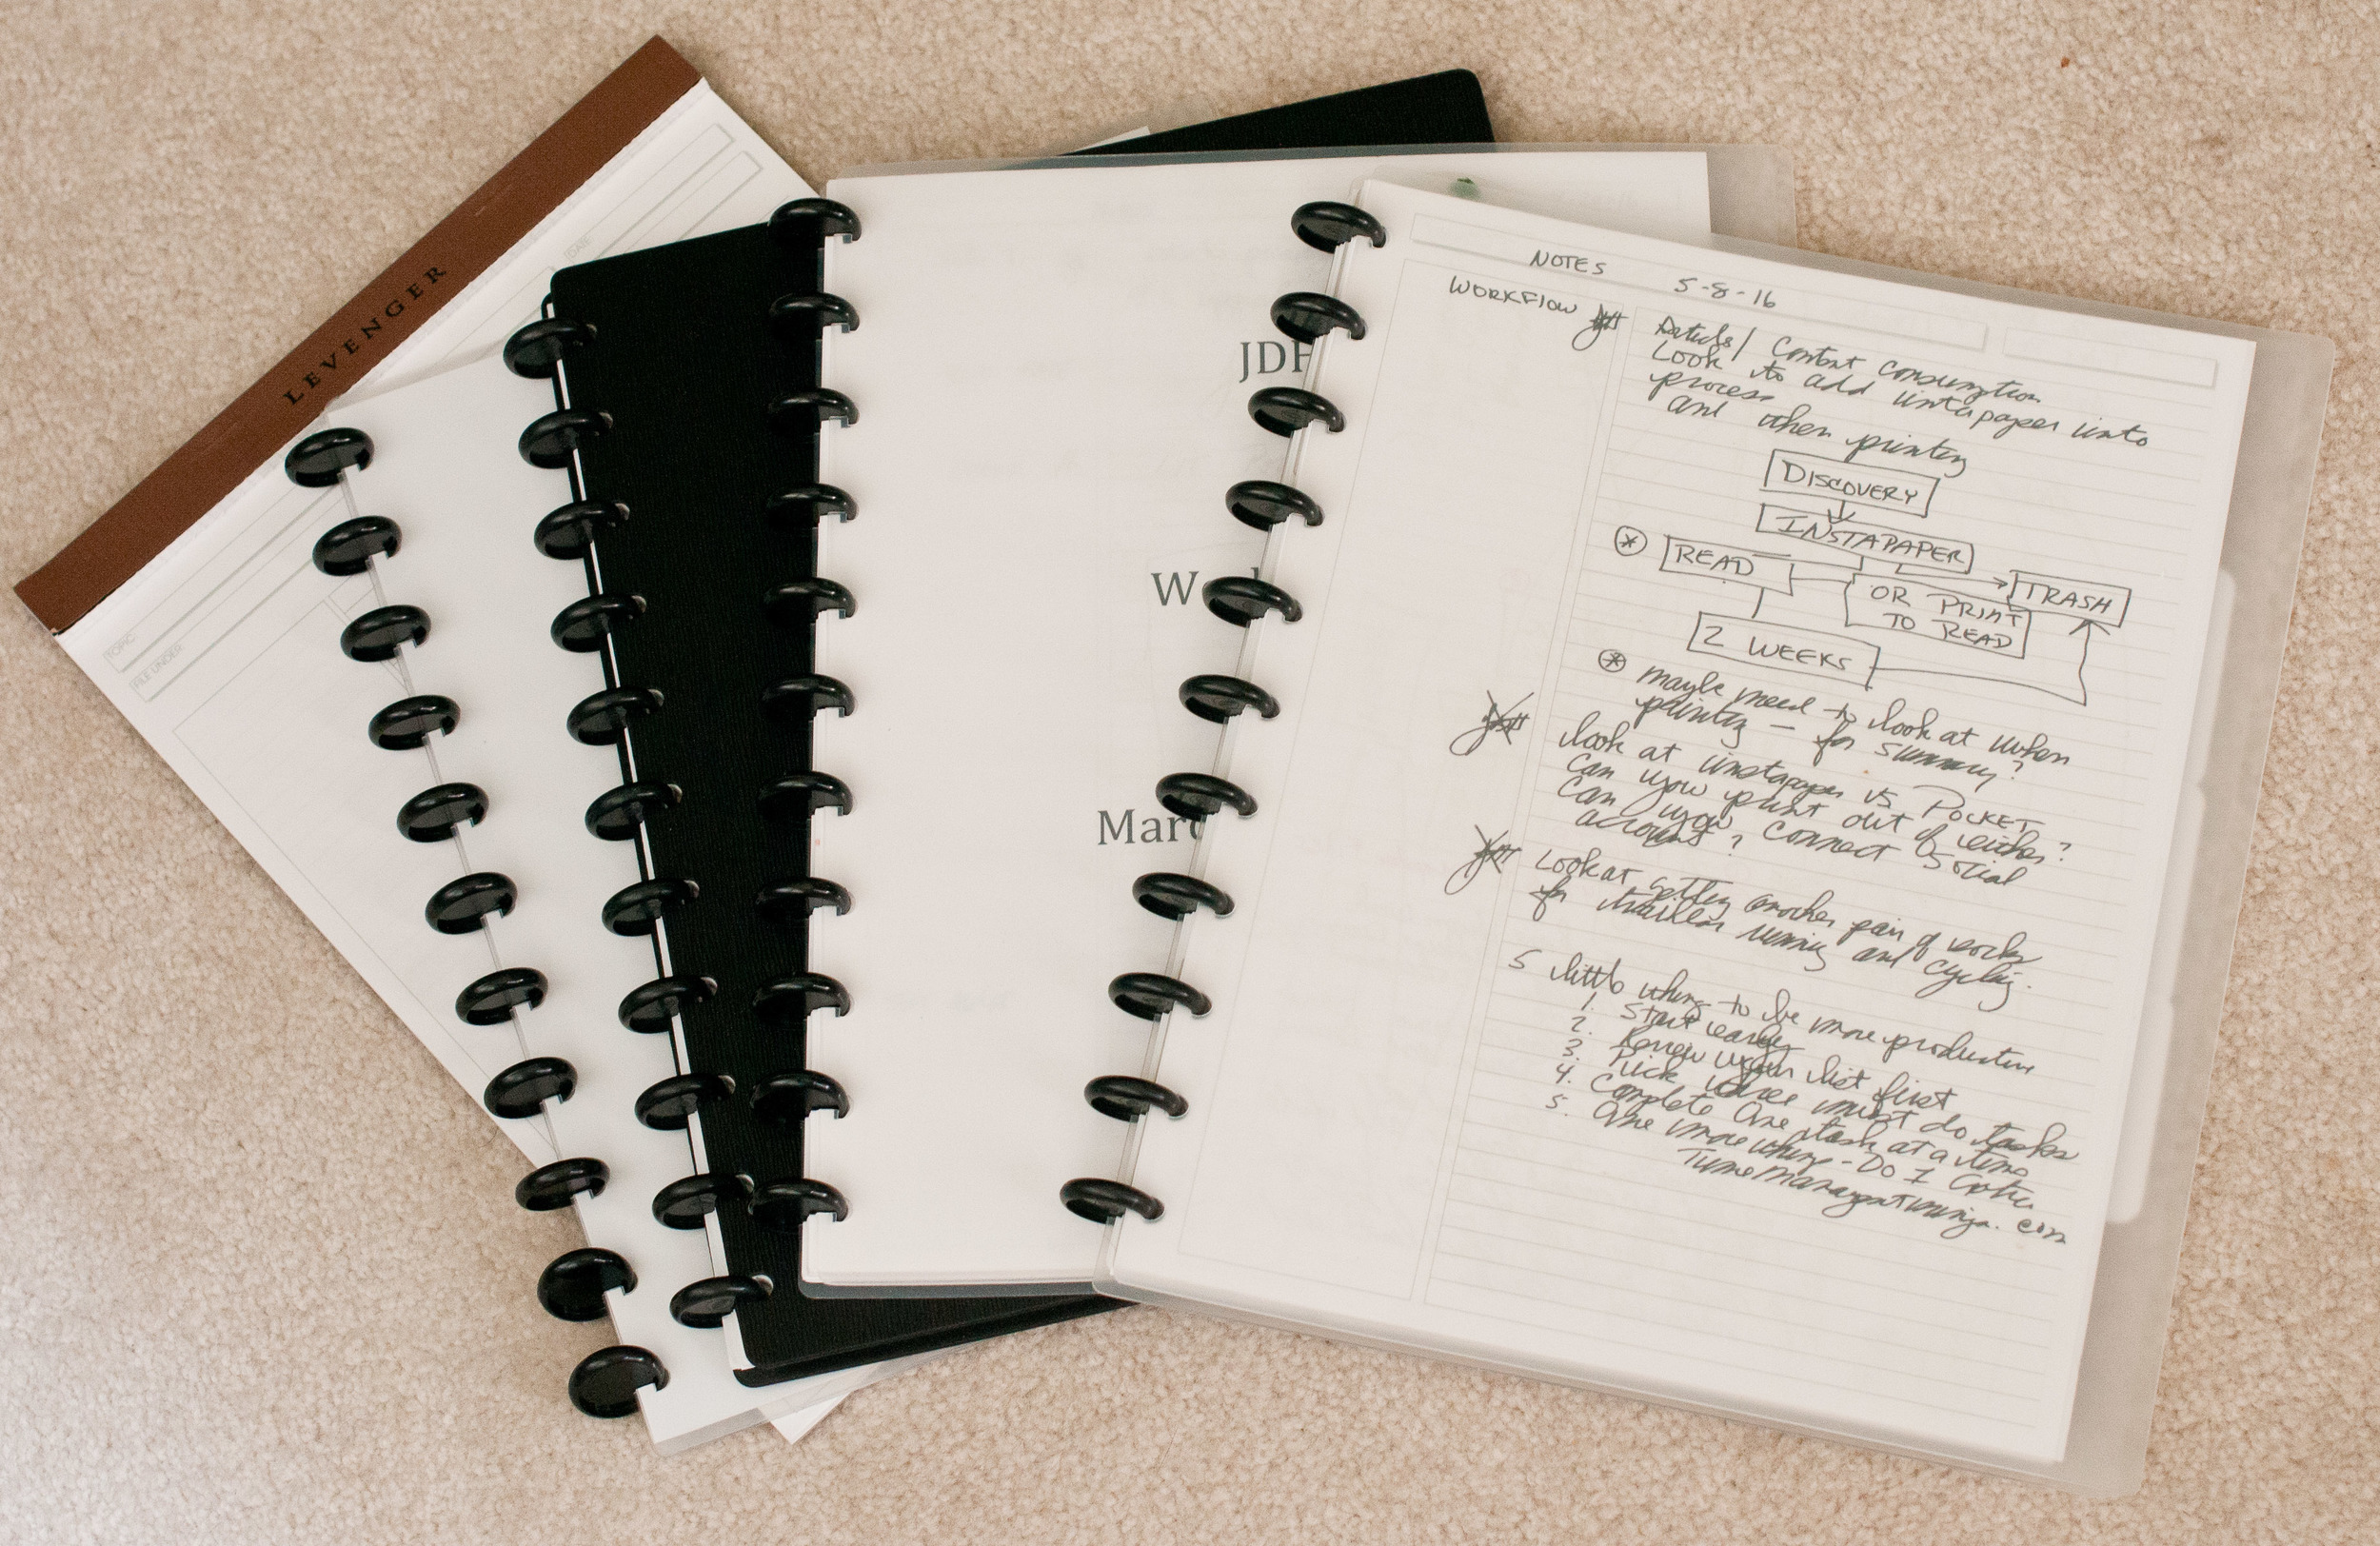 LEVENGER
TOPIC
FILE UNDER
DATE
JDF
W
Marc
NOTES 5-8-16
WORKFLOW
Articles / Content consumption
Look to add instapaper into
process
and then printing
DISCOVERY
INSTAPAPER
READ
OR PRINT
TO READ
TRASH
2 WEEKS
maybe need to look at when
printing - for summary?
look at instapaper vs POCKET
Can you print out of either?
Can you connect social
account?
Look at getting another pair of
for running and cycling.
5 little things to be more productive
1. Start early
2. Review your list first
3. Pick three must do tasks
4. Complete One task at a time
5. One more thing - Do I
Timemanagementninja.com